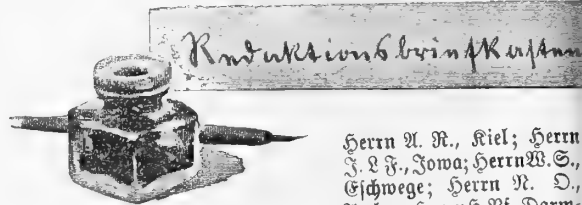 Redaktionsbriefkasten
Herrn A. R., Kiel; Herrn
J. L F., Iowa; Herrn W. S.,
Eschwege; Herrn N. O.,